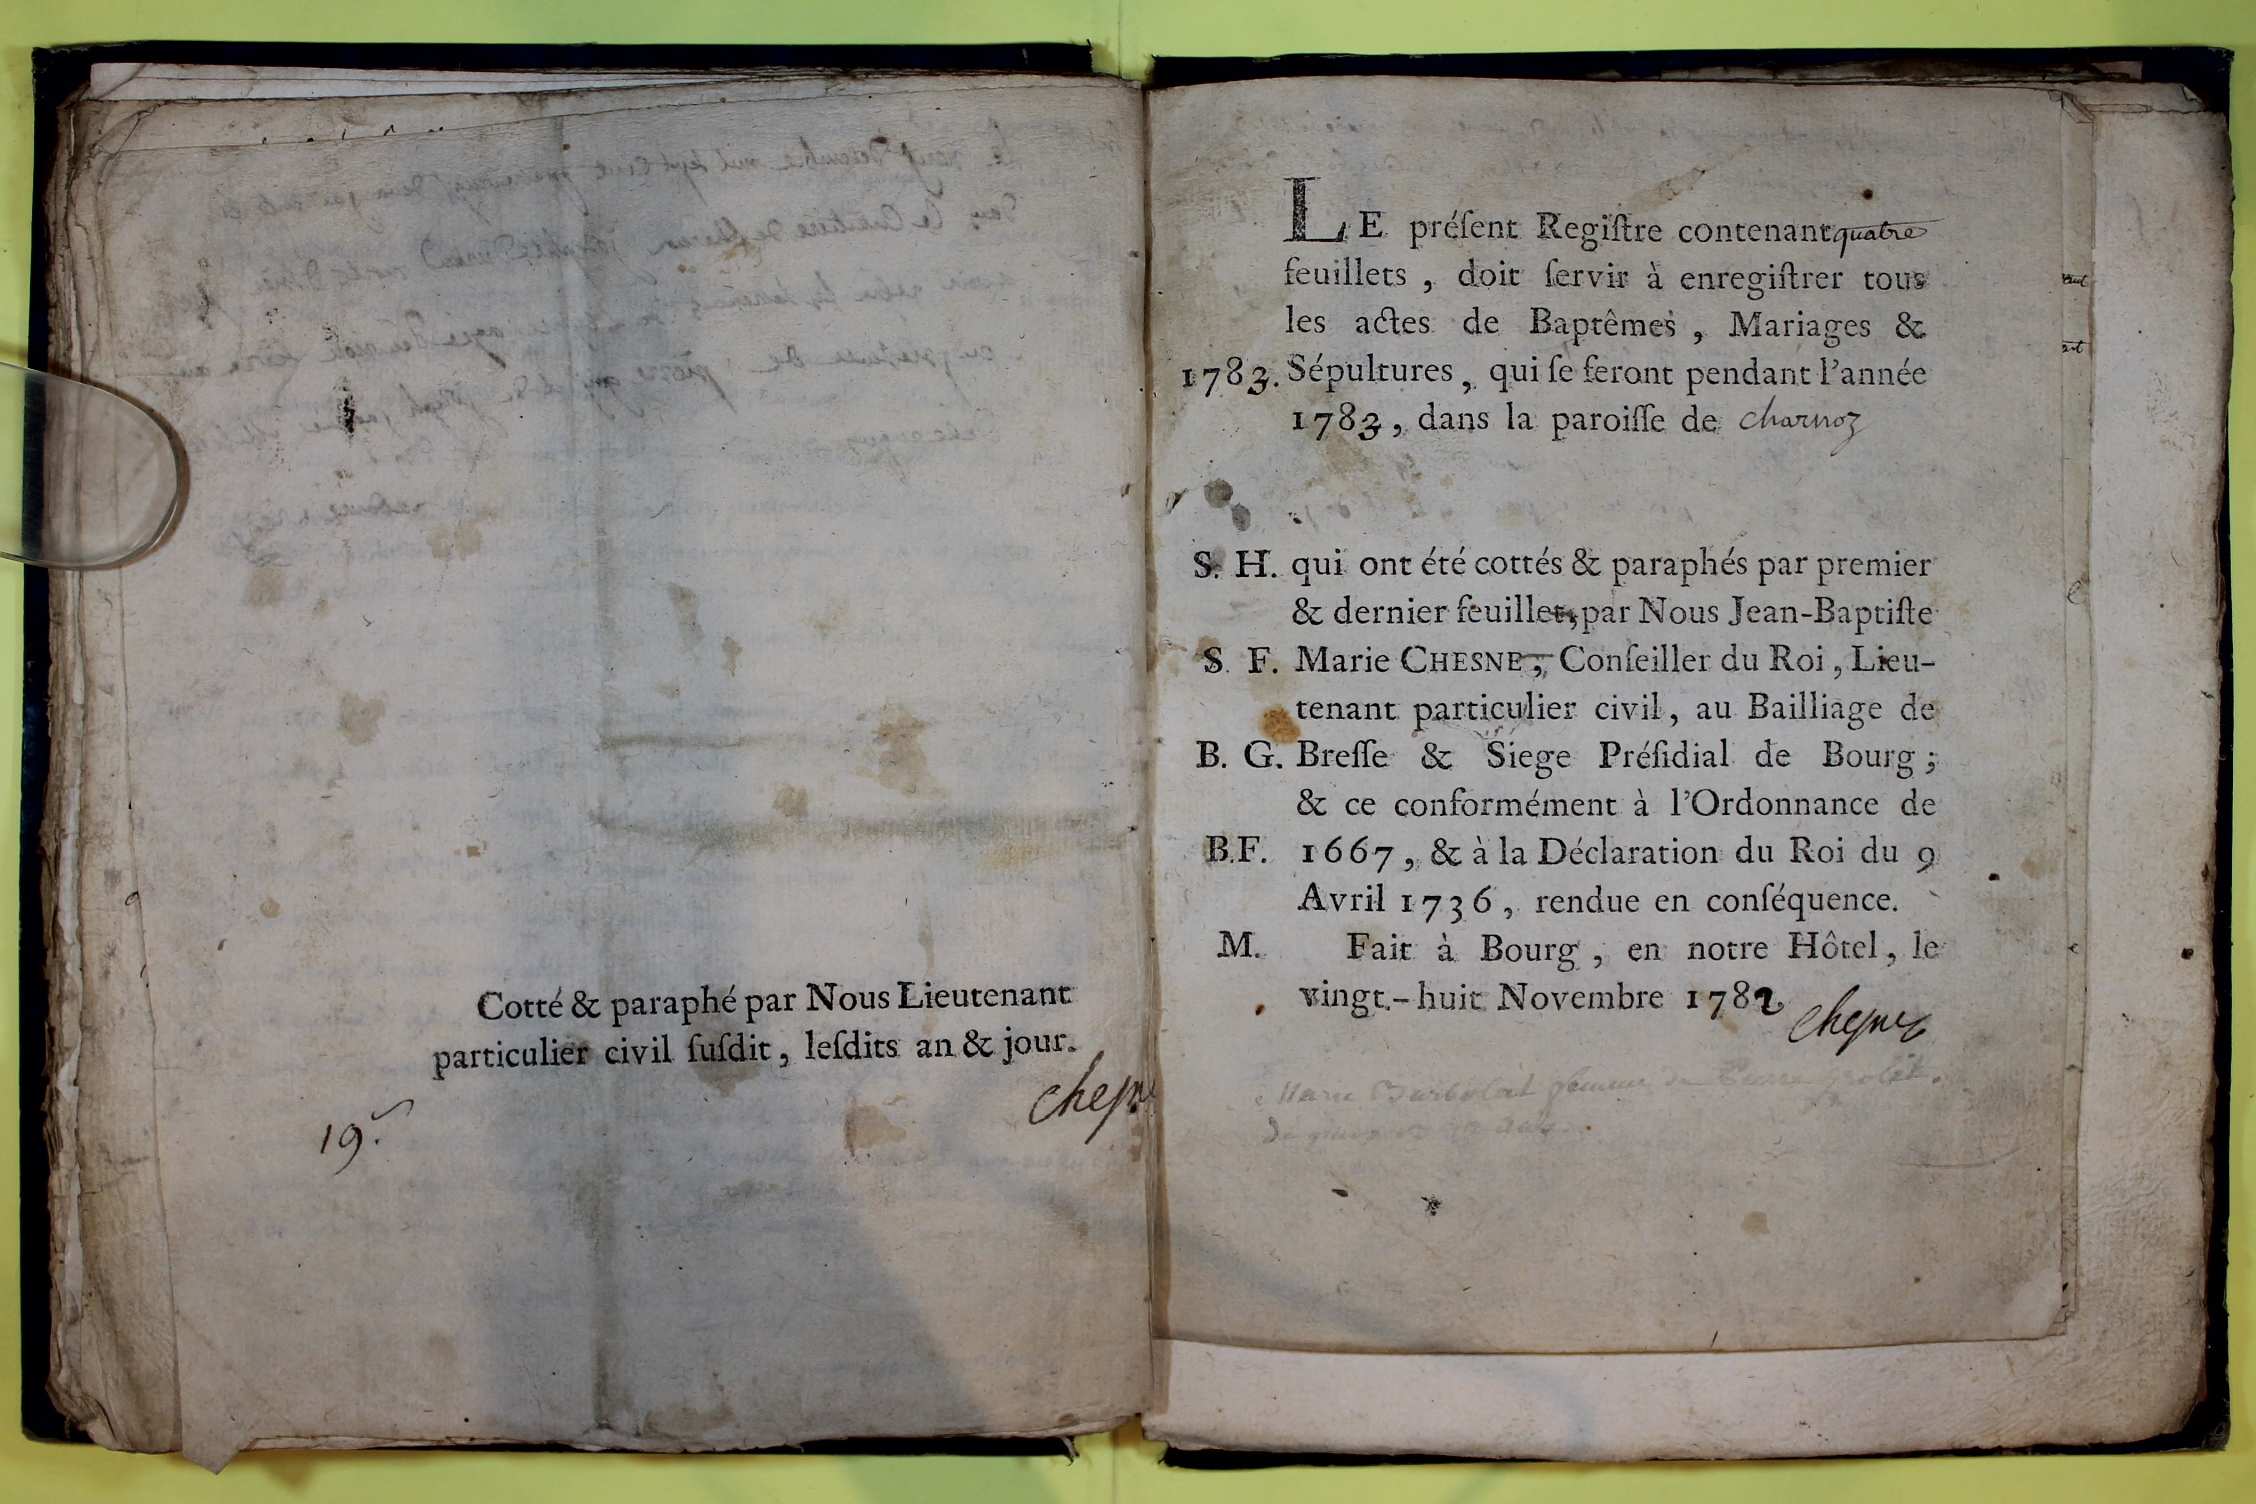 Cotté & paraphé par Nous Lieutenant
particulier civil ſuſdit, leſdits an & jour.
chesne
19.
LE préſent Regiſtre contenant quatre
feuillets, doit ſervir à enregiſtrer tous
les actes de Baptêmes, Mariages &
1783. Sépultures, qui ſe feront pendant l'année
1783, dans la paroiſſe de charnoz
S. H. qui ont été cottés & paraphés par premier
& dernier feuillet, par Nous Jean-Baptiſte
S. F. Marie CHESNE, Conſeiller du Roi, Lieu-
tenant particulier civil, au Bailliage de
B. G. Breſſe & Siege Préſidial de Bourg;
& ce conformément à l'Ordonnance de
B.F. 1667, & à la Déclaration du Roi du 9
Avril 1736, rendue en conſéquence.
M. Fait à Bourg, en notre Hôtel, le
vingt-huit Novembre 1782
chesne